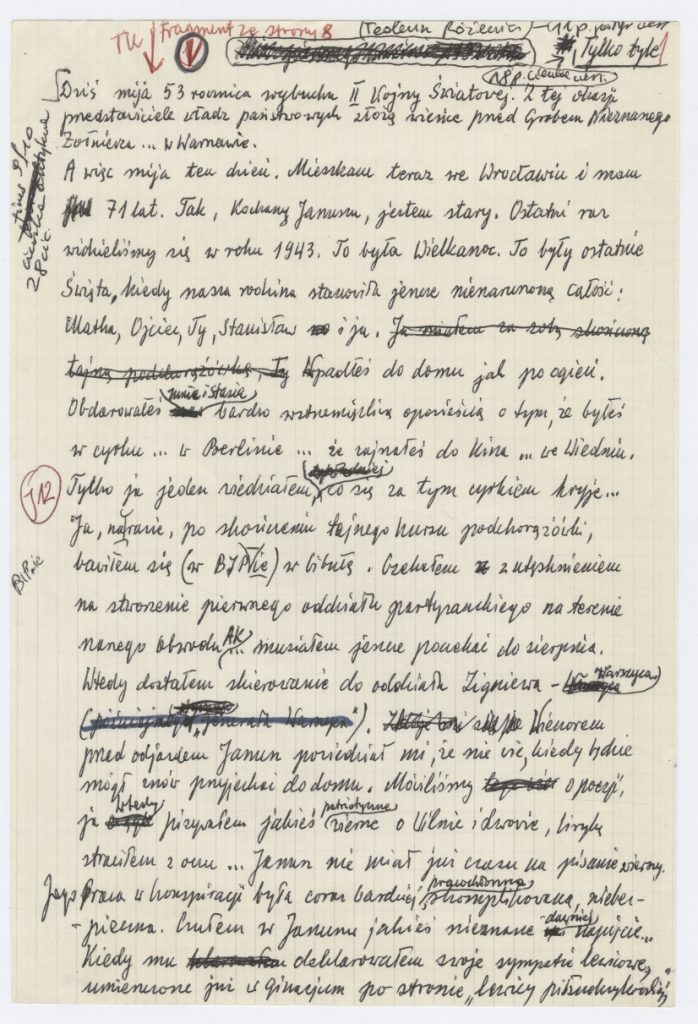 TK Fragment ze strony 8
(Tadeusz Różewicz)
Tylko tyle
18 p.
Dziś mija 53 rocznica wybuchu II Wojny Światowej. Z tej okazji
przedstawiciele władz państwowych złożą wieńce przed Grobem Nieznanego
Żołnierza ... w Warszawie.
A więc mija ten dzień. Mieszkam teraz we Wrocławiu i mam
71 lat. Tak, Kochany Januszu, jestem stary. Ostatni raz
widzieliśmy się w roku 1943. To była Wielkanoc. To były ostatnie
Święta, kiedy nasza rodzina stanowiła jeszcze nienaruszoną całość:
Matka, Ojciec, Ty, Stanisław i ja. Ja miałem za sobą skończoną
tajną podchorążówkę, Ty Wpadłeś do domu jak po ogień.
mnie i Stasia
Obdarowałeś bardzo wstrzemięźliwą opowieścią o tym, że byłeś
w cyrku ... w Berlinie ... że zajrzałeś do Kina ... we Wiedniu.
J12
Tylko ja jeden wiedziałem, co się za tym cyrkiem kryje...
Ja, na razie, po skończeniu tajnego kursu podchorążówki,
bawiłem się (w BIPie) w bibułę. Czekałem z utęsknieniem
BIPie
na stworzenie pierwszego oddziału partyzanckiego na terenie
naszego Obwodu AK ... musiałem jeszcze poczekać do sierpnia.
Wtedy dostałem skierowanie do oddziału Zbigniewa – Warszyca
(późniejszego "generała Warszyca"). Wieczorem
przed odjazdem Janusz powiedział mi, że nie wie, kiedy będzie
mógł znów przyjechać do domu. Mówiliśmy o poezji,
ja wtedy pisywałem jakieś patriotyczne wiersze o Wilnie i Lwowie, lirykę
straciłem z oczu ... Janusz nie miał już czasu na pisanie wierszy.
Jego Praca w konspiracji była coraz bardziej skomplikowana, niebez-
-pieczna. Czułem w Januszu jakieś nieznane dawniej napięcie...
Kiedy mu deklarowałem swoje sympatie lewicowe,
umieszczone już w gimnazjum po stronie "lewicy piłsudczykowskiej"